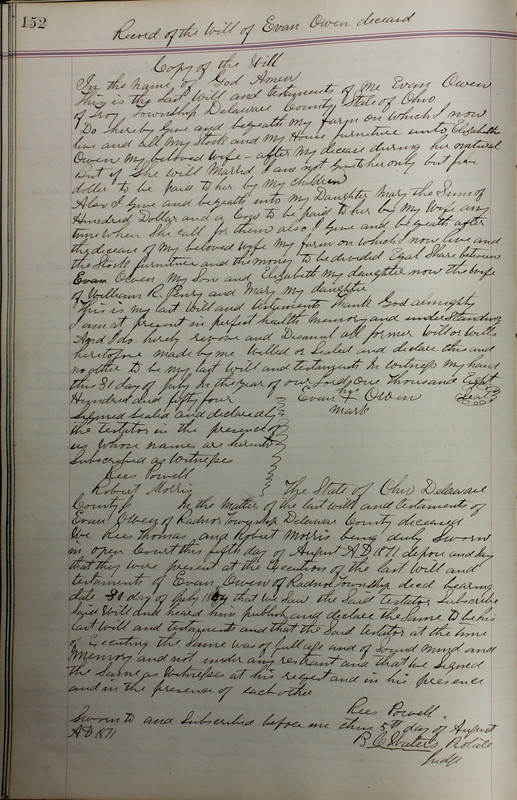 152
Record of the Will of Evan Owen deceasd
Copy of the Will
In the name of God Amen
This is the Last Will and testaments of me Evan Owen
of Troy Township Delaware County State of Ohio
Do hereby Give and beqeath my farm on which I now
live and all my Stock and my House furniture unto Elizabeth
Owen my beloved wife - after my decease during her natural
But if She will Married, I am not give her only but five
doller to be paid to her by my Children
Also I Give and beqeath into my Daughter Mary the Sum of
Hundred Dollar and a Cow to be paid to her by my Wife any
time when She call for them also I Give and beqeath after
the decease of my beloved wife my farm on which I now live and
the Stock furniture and the money to be divided Eqal Share between
Evan Owen my Son and Elizabeth my daughter now the wife
of William R. Penry and Mary my daughter
This is my last Will and testaments Thank God almighty
I am at present in perfect health memory and under Standing
And I do herely revove and Disanul all former will or wills
heretofore made by me Willed or Sealed and declare this and
no other to be my last Will and testaments In witness my hand
this 31 day of July In the year of our Lord One thousand Eight
Hundred and fifty four Evan his X Owen Seal
Signed Sealed and declared by mark
the testator in the presence of
us whose names are hereunto
Subscribed as Witnesse
Rees Powell
Robert Morris
The State of Ohio Delaware
County ss In the Matter of the last will and testaments of
Evan Owen of Radnor Township Delaware County deceased
We Rees Thomas and Robert Morris being duly Sworn
in open Court this fifth day of August AD 1871 depose and say
that they were present at the Execution of the last Will and
testaments of Evan Owen of Radnor Township decd bearing
date 31 day of July that we Saw the Said testator Subscribe
Said Will and heard him publish and declare the Same to be his
last Will and testaments and that the Said testator at the time
of Executing the Same was of full age and of Sound mind and
Memory and not under any restraint and that we Signed
the Same as Witnesses at his reqest and in his presence
and in the presence of each other
Rees Powell
Sworn to and Subscribed before me this 5th day of August
AD 1871 B. C. Waters, Probate
Judge